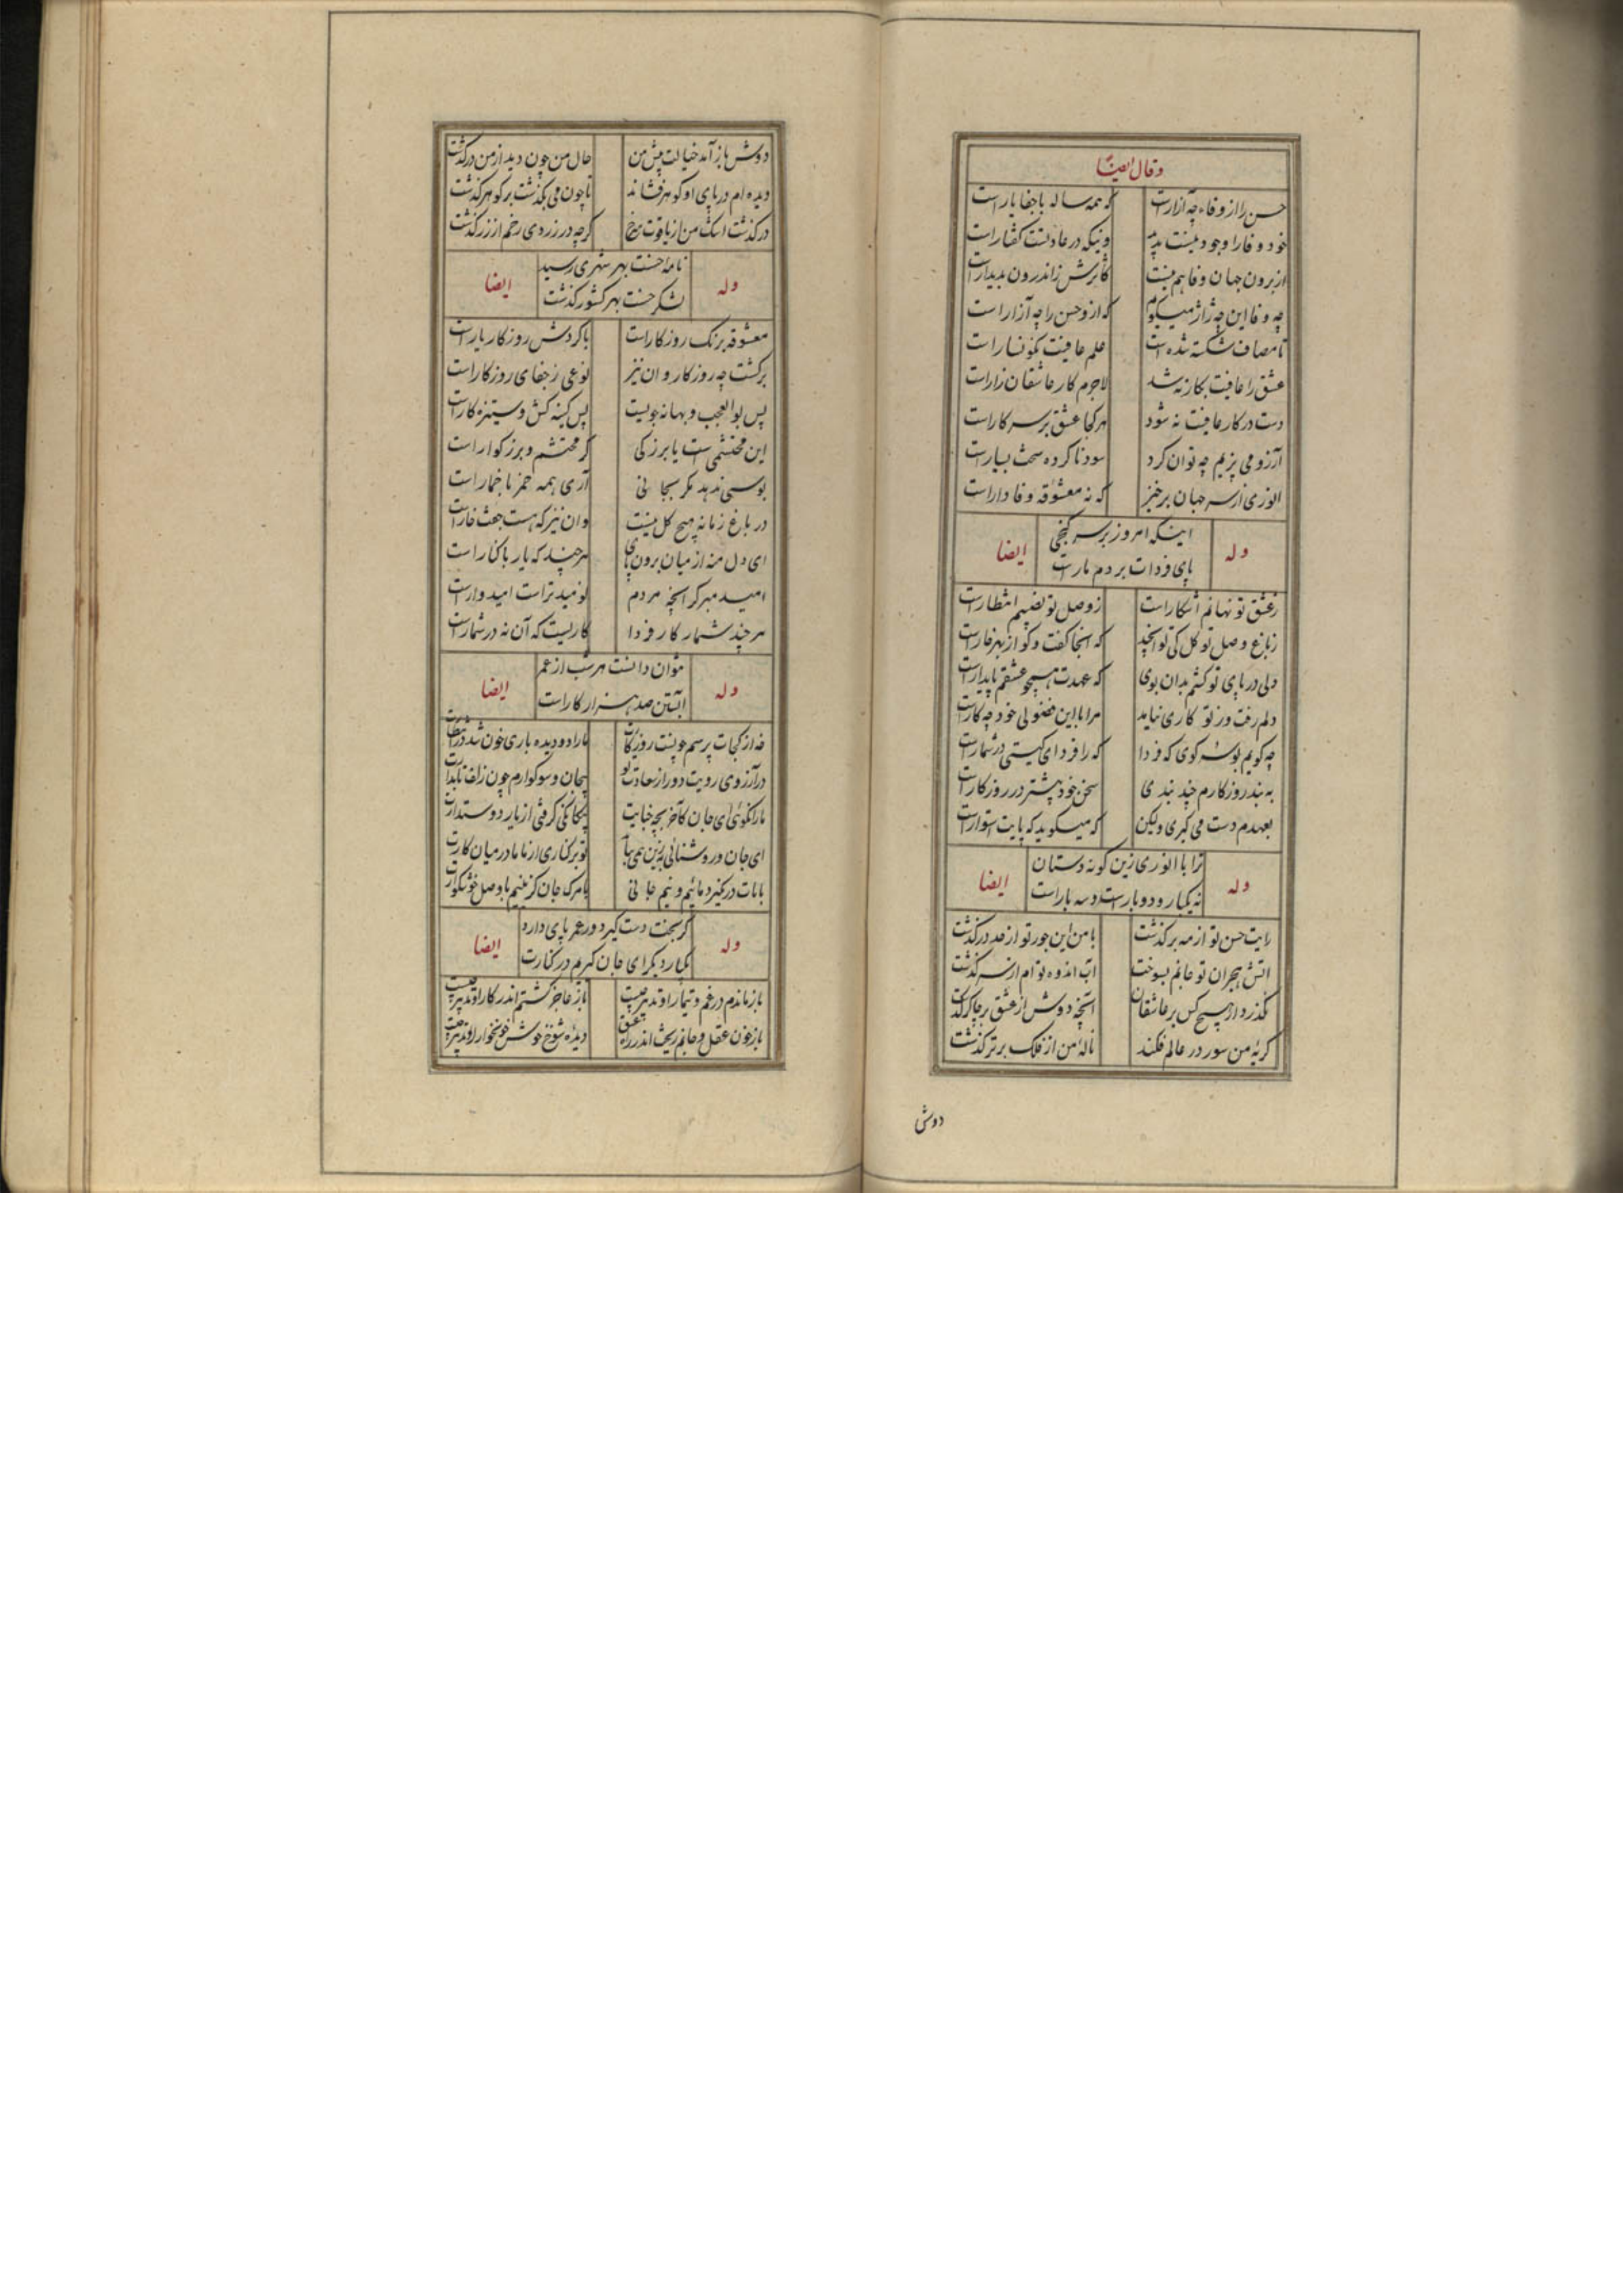 وقال ایضاً
حسن را از وفا چه آزارست که همه ساله با جفا یارست
خود وفا را وجود نیست پدید وینکه در عادتست گفتارست
از برون جهان وفا هم نیست کاثرش زاندرون پدیدارست
چه وفا این چه ژاژ میگویم که ازو حسن را چه آزارست
تا مصاف شکسته شده است علم عافیت نگونسارست
عشق را عافیت بکار نشد لاجرم کار عاشقان زارست
دست در کار عافیت نه شود هرکجا عشق بر سر کارست
آرزو می پزیم چه توان کرد سود ناکرده سخت بسیارست
انوری از سر جهان برخیز که نه معشوقه وفادارست
وله اینکه امروز بر سر گنجی ایضا
پای فردات بر دم مارست
ز عشق تو نهانم آشکارست ز وصل تو نصیبم انتظارست
ز باغ وصل تو گل کی توان چید که آنجا گفت و گو از بهر خارست
ولی در پای تو گشتم بدان بوی که عهدت همچو عشقم پایدارست
دلم رفت و ز تو کاری نیاید مرا با این فضولی خود چه کارست
چه گویم بوسه گوی که فردا که را فردای گیتی در شمارست
به بند روزگارم چند بندی سخن خود بیشتر در روزگارست
بعهدم دست می گیری ولیکن که میگوید که پایت استوارست
وله ترا با انوری زین گونه دستان ایضا
نه یکبار و دو بارست و سه بارست
رایت حسن تو از مه برگذشت با من این جور تو از حد درگذشت
آتش هجران تو جانم بسوخت آب اندوه توام از سر گذشت
نگذرد از هیچ کس بر عاشقان آنچه دوش از عشق بر چاکر گذشت
گریه من سور در عالم فکند ناله من از فلک برتر گذشت
دوش
دوش باز آمد خیالت پیش من حال من چون دید از من درگذشت
دیده ام در پای او گوهر فشاند تا چون می بگذشت بر گوهر گذشت
درگذشت اشک من از یاقوت سرخ گرچه در زردی رخم از زر گذشت
وله نامه حسنت بهر شهری رسید ایضا
لشکر حسنت بهر کشور گذشت
معشوقه برنگ روزگارست با گردش روزگار یارست
برگشت چه روزگار و آن نیز نوعی ز جفای روزگارست
پس بوالعجب و بهانه جویست پس کینه کش و ستیزه کارست
این محتشمی است یا بزرگی گر محتشم و بزرگوارست
بوسی ندهد مگر بجانی آری همه خمر با خمارست
در باغ زمانه هیچ گل نیست وان نیز که هست جفت خارست
ای دل منه از میان برون پای هرچند که یار با کنارست
امید مبر گر آنچه مردم نومیدتر است امیدوارست
هر چند شمار کار فردا کاریست که آن نه در شمارست
وله بتوان دانست هر شب از عمر ایضا
آبستن صد هزار کارست
نه از کجات پرسم چونست روزگارت ما را دو دیده باری خون شد در انتظارت
در آرزوی رویت دور از سعادت تو پیچان و سوگوارم چون زلف تابدارت
ما را نگوئی ای جان کآخر بچه خیانت بیگانگی گرفتی از یار دوستدارت
ای جان و روشنائی به زین همی بباید تو بر کناری از ما ما در میان کارت
با مات در نگیرد مائیم و نیم جانی یا مرگ جان گزینیم یا وصل خوشگوارت
وله گر بخت دست گیرد ور عمر پای دارد ایضا
یکبار دیگر ای جان گیریم در کنارت
باز ماندم در غم و تیمار او تدبیر چیست باز عاجز گشتم اندر کار او تدبیر چیست
باز خون عقل و جانم ریخت اندر راه عشق دیده شوخ خوش خونخوار او تدبیر چیست